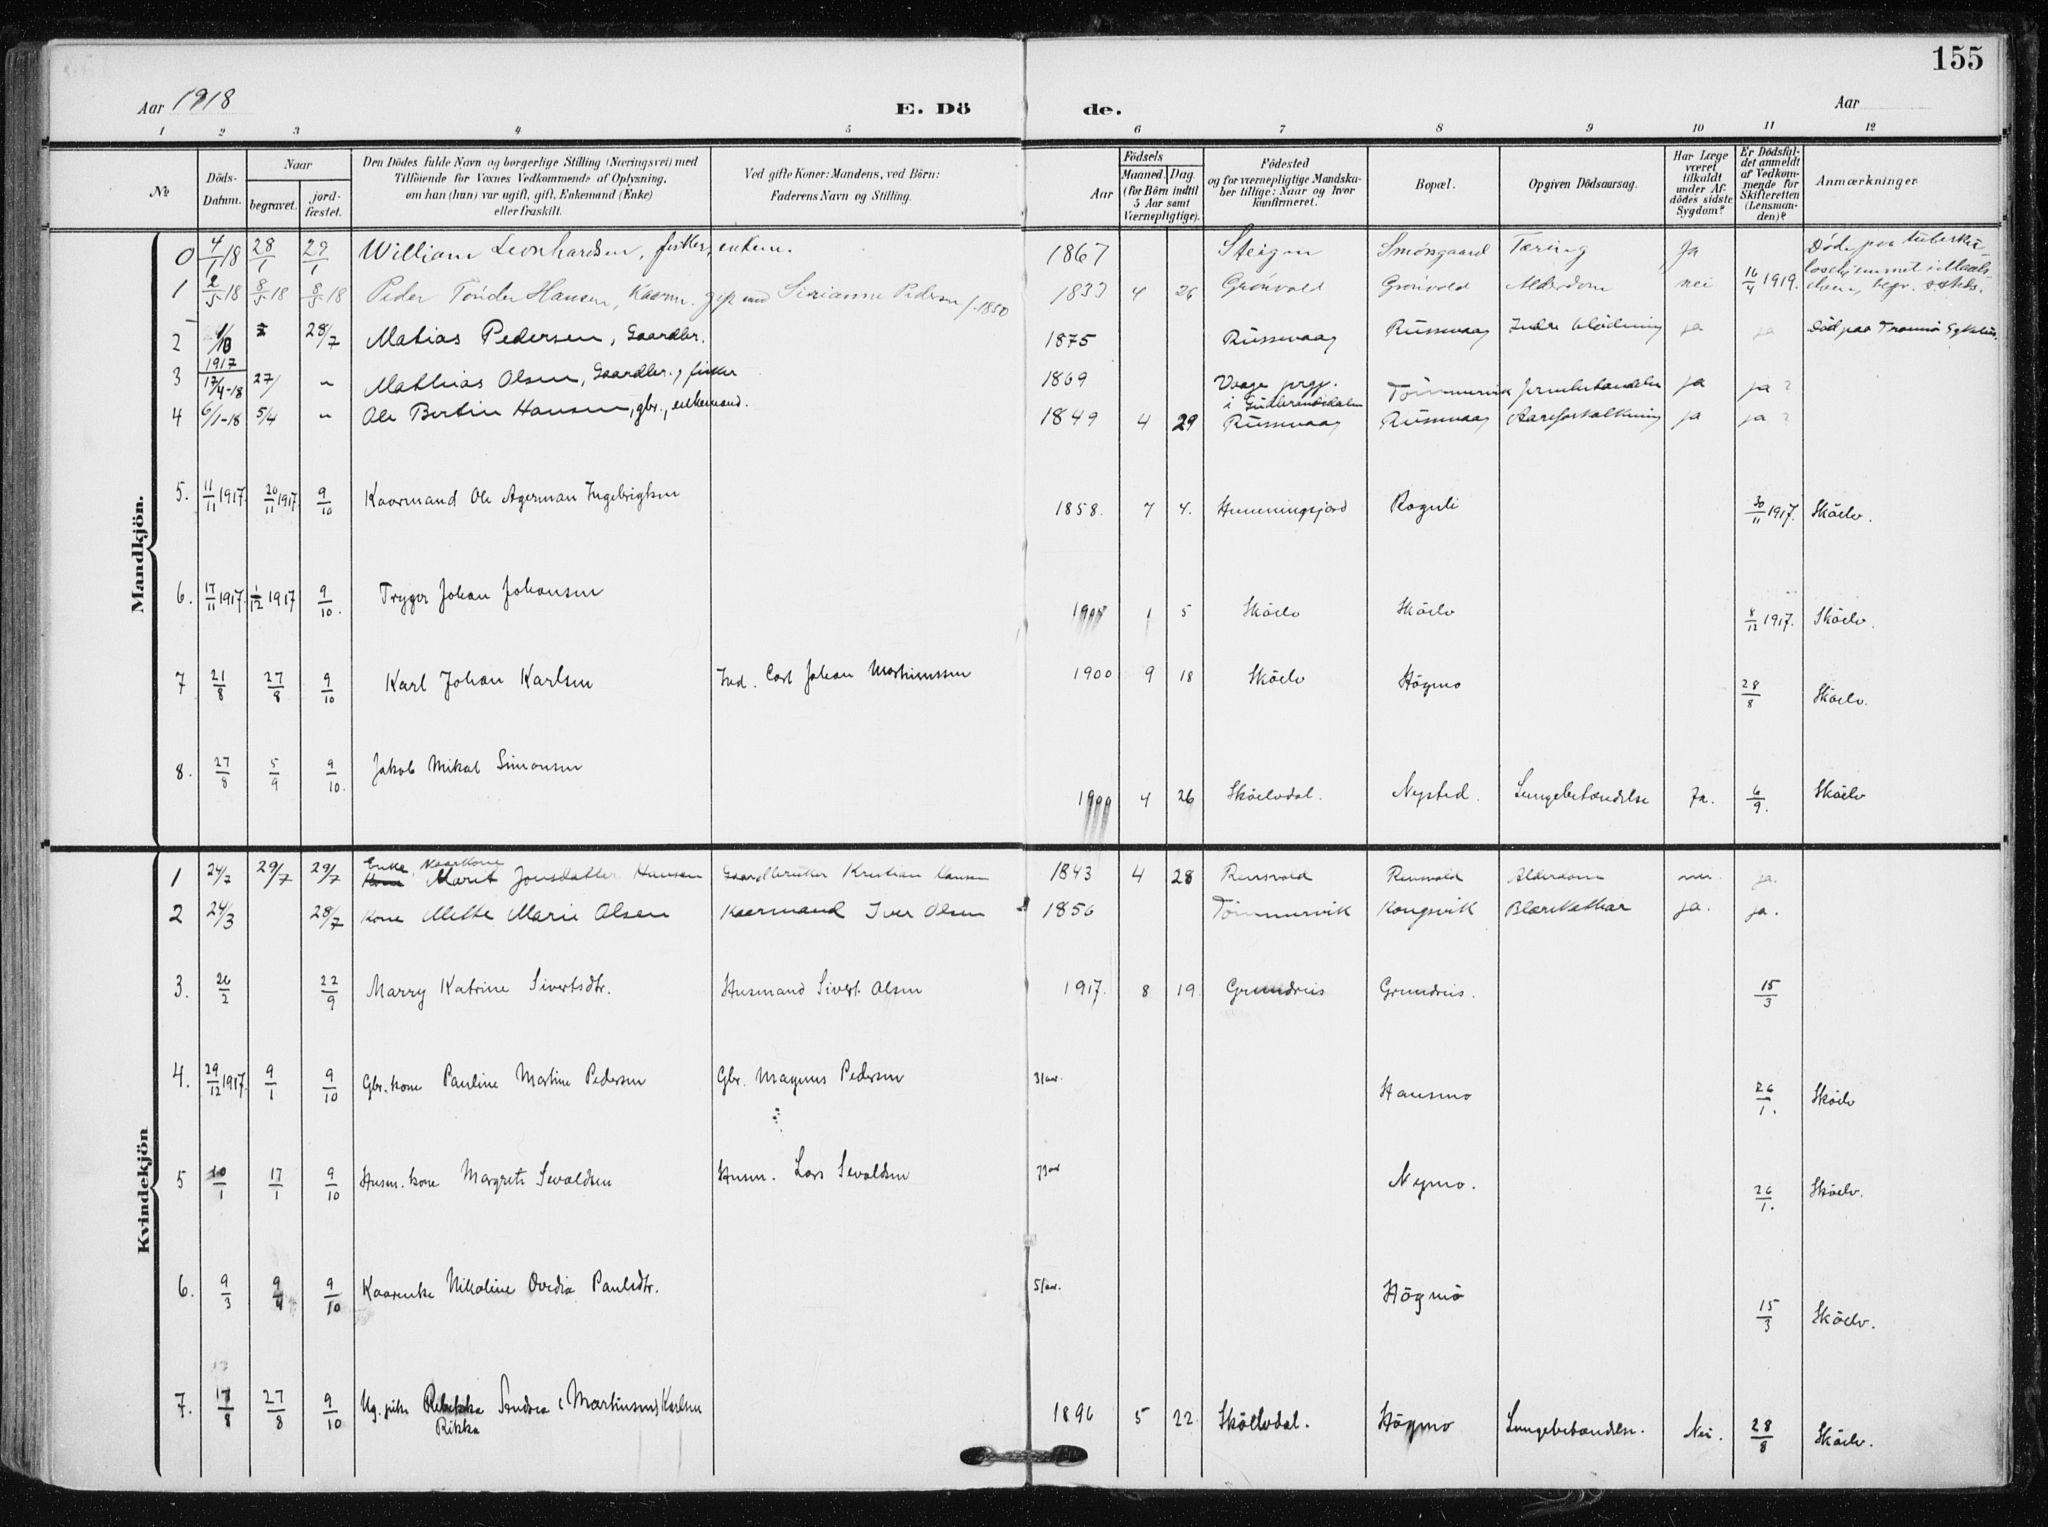 155
Aar 1918 E. Dö de. Aar
1 2 3 4 5 6 7 8 9 10 11 12
№ Döds-Datum. Naar begravet. jord-fæstet. Den Dödes fulde Navn og borgerlige Stilling (Næringsvei) med Tilföiende for Voxnes Vedkommende af Oplysning, om han (hun) var ugift, gift, Enkemand (Enke) eller fraskilt. Ved gifte Koner: Mandens, ved Börn: Faderens Navn og Stilling. Aar Födsels Maaned. Dag. (for Börn indtil 5 Aar samt Værnepligtige). Födested og for værnepligtige Mandska-ber tillige: Naar og hvor konfirmeret. Bopæl. Opgiven Dödsaarsag. Har Læge været tilkaldt under Af-dödes sidste Sygdom? Er Dödsfal-det anmeldt af Vedkom-mende for Skifteretten (Lensman-den)? Anmærkninger.
Mandkjön.
0 4/1 18 28/1 29/1 William Leonhardsen, fisker, enkem. 1867 Steigen Smörsgaard Tæring Ja Död paa tuberku-
1 2/5 18 8/5 18 8/5 18 Peder Tönder Hansen, Kaarm. gift med Sirianna Pedersen f. 1850 1833 4 26 Grönvold Grönvold Alderdom nei 16/4 1919.
2 28/7 Matias Pedersen, Gaardbr. 1875 Russevaag Russevaag Indre blödning ja ja Död paa Tromsö Sykehus.
3 1917 17/4-18 27/ „ Mathias Olsen, Gaardbr., fisker 1869 Vaage prgj. i Gudbrandsdalen Tömmervik ja ja ?
4 6/1-18 5/4 „ Ole Bertin Hansen, gbr., enkemand. 1849 4 29 Russevaag Russevaag Aareforkalkning ja ja ?
5. 11/11 1917 20/11 1917. 9/10 Kaarmand Ole Agerman Ingebrigtsen 1858. 7 4. Hemmingsjord Rognli 30/11 1917. Sköelv.
6. 17/11 1917. 1/12 1917 9/10. Trygve Johan Johansen 1 5 Sköelv Sköelv 8/12 1917. Sköelv.
7 21/8 27/8 9/10 Karl Johan Karlsen Ind. Carl Johan Martinussen 1900 9 18 Sköelv Högmo 28/8 Sköelv.
8. 27/8 5/9 9/10. Jakob Mikal Simonsen 4 26 Sköelvdal. Nysted. Lungebetændelse Ja. 6/9. Sköelv
Kvindekjön
1 24/7 29/7 29/7 Enke, Kaarkone Marit Jonsdatter Hansen Gaardbruker Kristian Hansen 1843 4 28 Rensvold Rensvold Alderdom nei. ja.
2 24/3 28/7 Kone Mette Marie Olsen Kaarmand Iver Olsen 1856 Tömmervik Kongsvik Blærekatthar ja. ja.
3. 26/2 22/9 Marry Katrine Sivertsdtr. Husmand Sivert Olsen 1917. 8 19. Grundreis Grundreis. 15/3
4. 29/12 1917. 9/1 9/10 Gbr. kone Pauline Martine Pedersen Gbr. Magnus Pedersen 31 aar. Hansmo 26/1. Sköelv
5 10/1 17/1 9/10 Husm. kone Margrete Sivaldsen Husm. Lars Sivaldsen Nymo. 26/1. Sköelv.
6. 9/3 9/4 9/10 Kaarenke Nikoline Ovedia Paulsdtr. 51 aar. Högmo 15/3 Sköelv.
7. 17/8 27/8 9/10 Ug. pike Rebekka Rikka Andrea (Martinsen) Karlsen 1896 5 22. Sköelvdal. Högmo Lungebetændelse. Nei. 28/8 Sköelv.